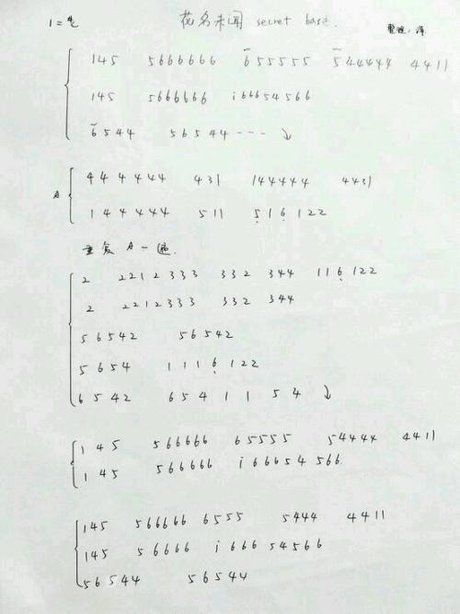 花名未闻 secret base.
145 5666666 6̄55555 5̄44444 4411
145 5666666 i66654566
6̄544 56544--- ↓
A 44 44444 431 144444 4431
144444 511 5̣16̣122
重复A一遍.
2 2212333 332 344 116̣122
2 2212333 332 344
56542 56542
5654 1116̣122
6542 65411 54 ↓
145 566666 65555 54444 4411
145 566666 i66654 566
145 566666 6555 5444 4411
145 56666 i666 54566
56544 56544